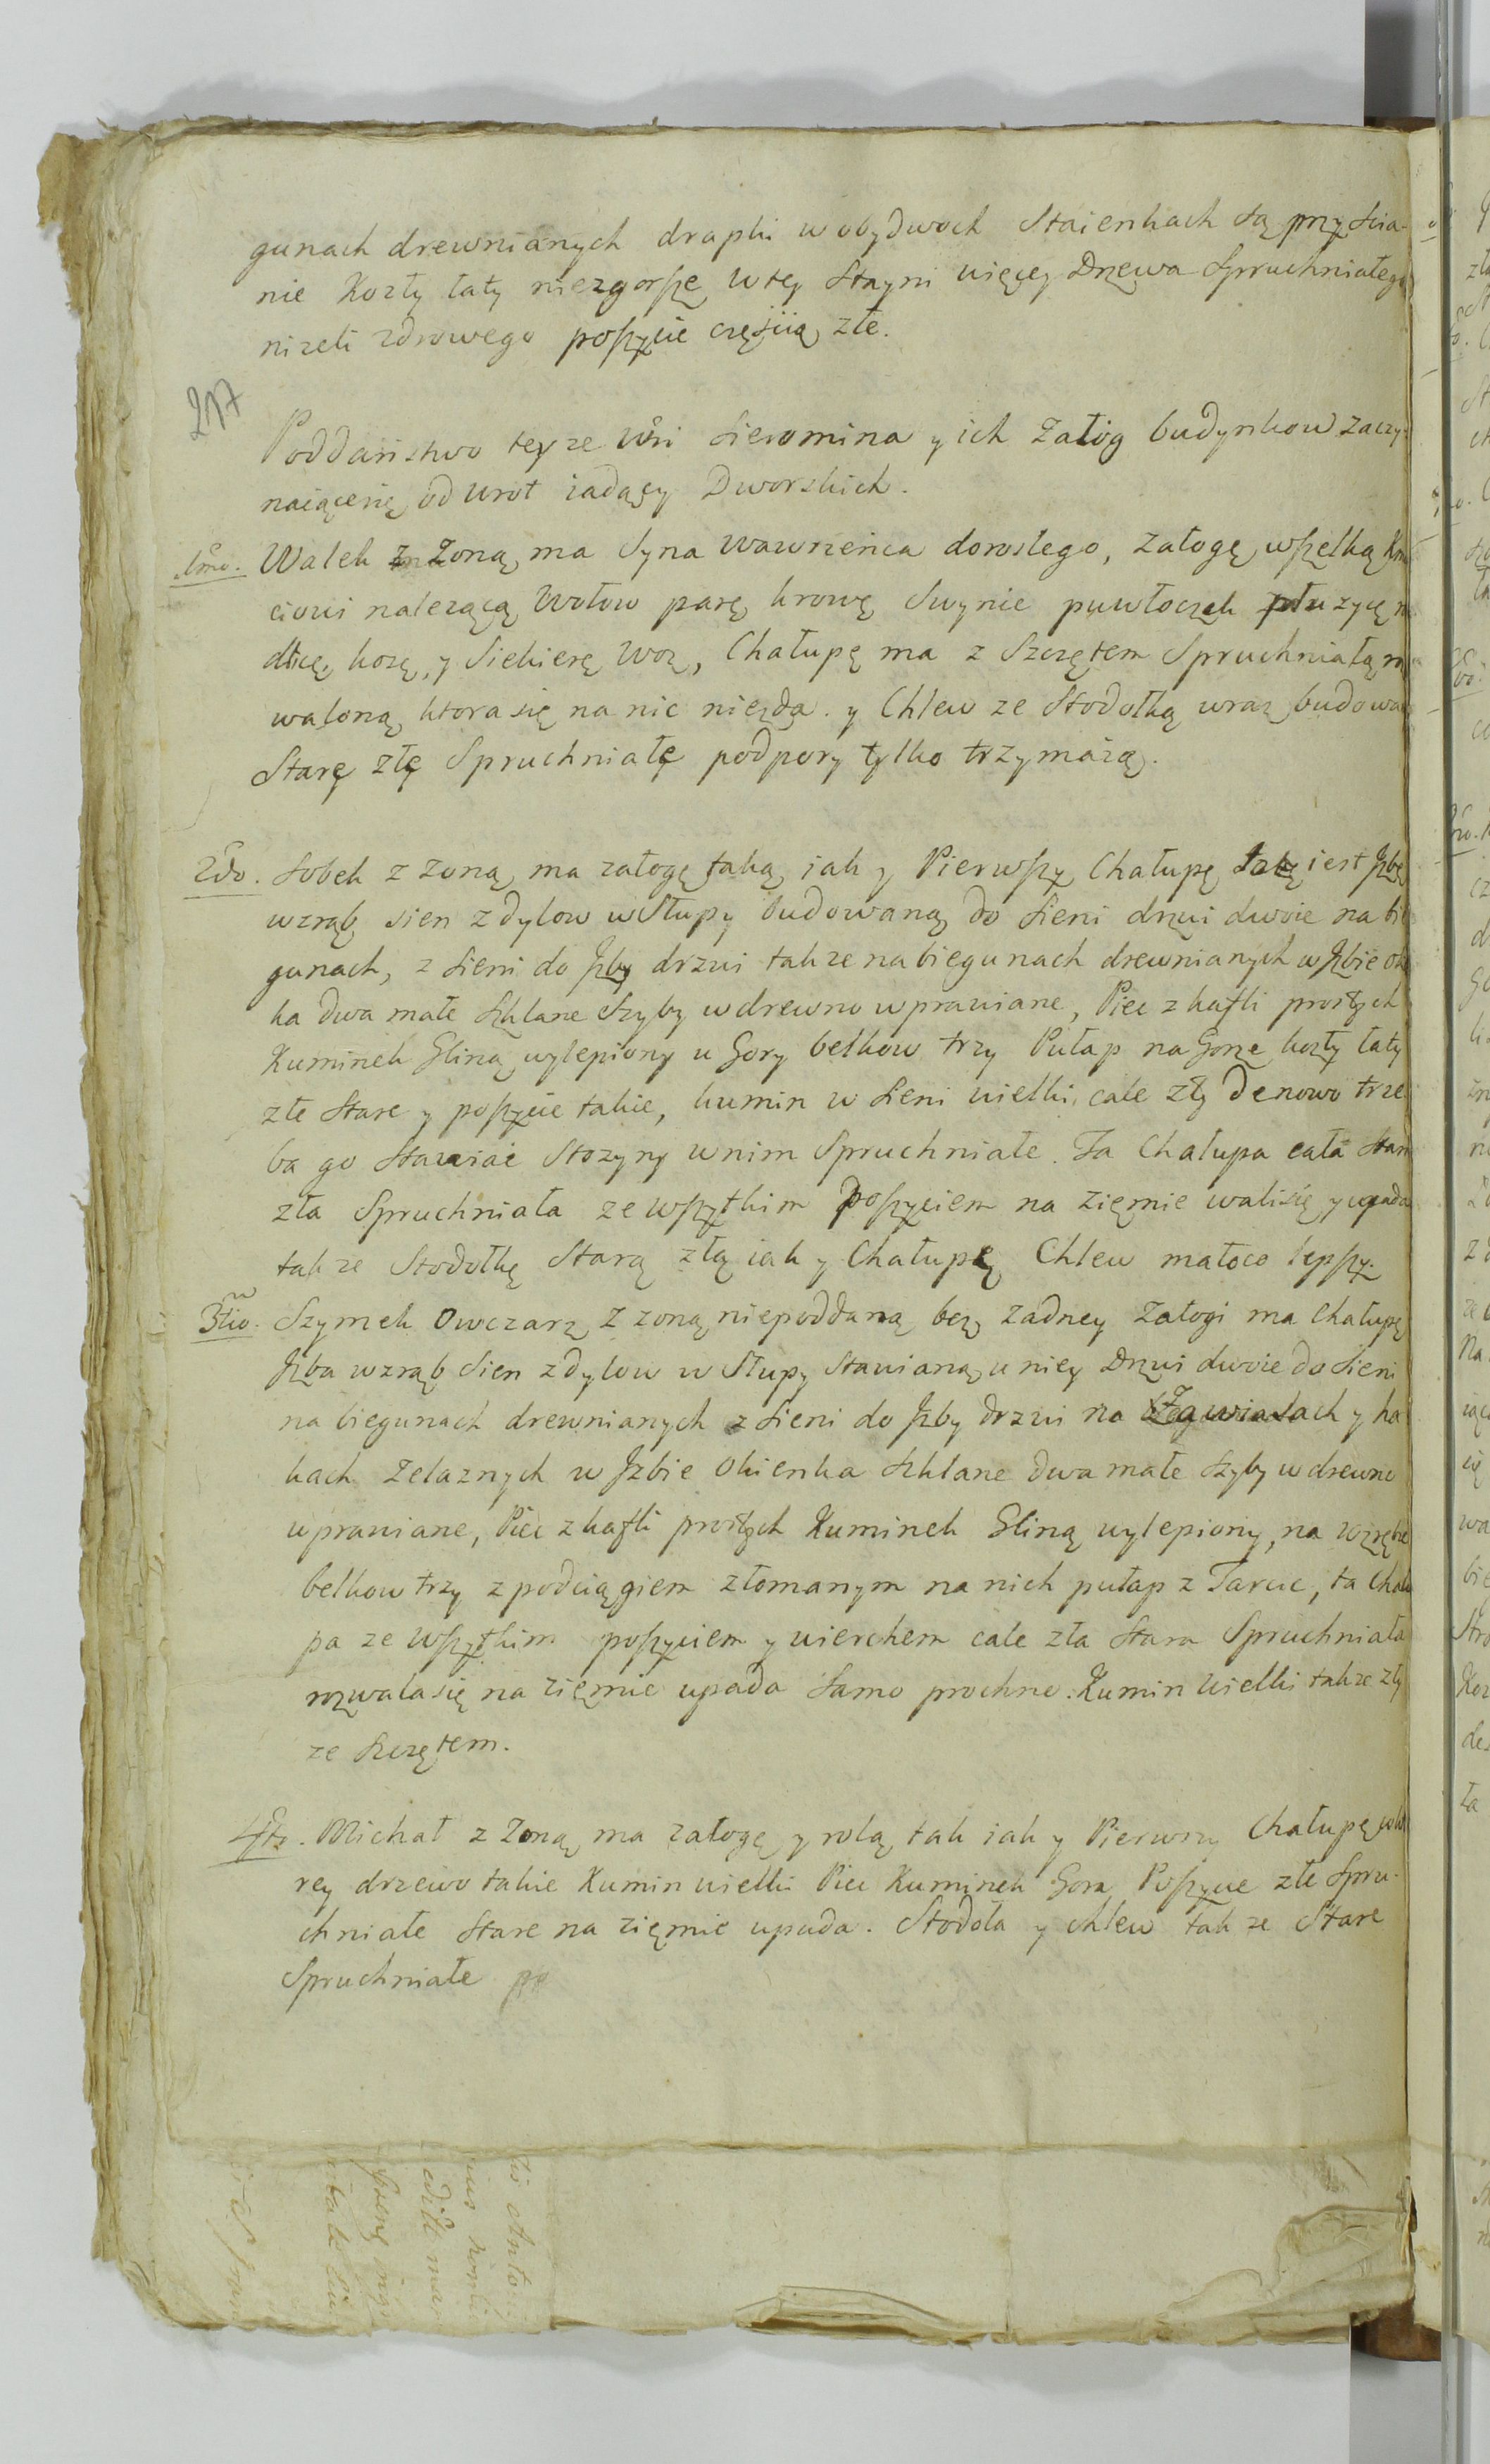 gunach drewnianych drapki w obydwoch Staienkach są przy scia-
nie Kozły łaty niezgorsze w tey Stayni więcey Drzewa Spruchniałego
nizeli zdrowego poszycie częścią złe.
217
Poddaństwo teyze Wsi Sieromina y ich Załóg budynkow zaczy-
naiącesię od wrot iadący Dworskich.
1mo. Walek z Zoną ma Syna Wawrzenca dorosłego, załogę wszelką Km
ciowi nalezącą Wołow parę krowę Swynie puwłoczek płuzycę
dlicę, kosę, y Siekierę Woz, Chałupę ma z Szczętem Spruchniałą
waloną ktora się na nic niezda. y Chlew ze Stodołką wraz budowa
Starę złę Spruchniałę podpory tylko trzymaią.
2do. Sobek z zoną ma załogę taką iak y Pierwszy Chałupę iest Jzbę
wzrąb sien z dylow w Słupy budowaną do Sieni drzwi dwoie na bie
gunach, z sieni do Jzby drzwi takze na biegunach drewnianych w Jzbie ok
ka dwa małe Szklane Szyby w drewno wprawiane, Piec z kafli prostych
Kuminek Gliną wylepiony u Gory belkow trzy Pułap na Gorze kozły łaty
złe Stare y poszycie takie, kumin w Sieni wielki cale zły Denowo trze
ba go Stawiać Stozyny w nim Spruchniałe. Ta Chałupa cała Star
zła Spruchniała ze wszytkim poszyciem na zięmie walisię y upada
takze Stodołkę Starą złą iak y Chałupę Chlew małoco lepszy.
3tio. Szymek Owczarz z zoną niepoddaną bez zadney Załogi ma Chałupę
Jzba wzrąb Sien z dylow w Słupy Stawianą u niey Drzwi dwoie do Sieni
na biegunach drewnianych z Sieni do Jzby drzwi na Zawiasach y ha
kach Zelaznych w Jzbie Okienka Szklane dwa małe Szyby w drewno
uprawiane, Piec z kafli prostych Kuminek Gliną wylepiony, na wzrębie
belkow trzy z podciągiem złomanym na nich pułap z Tarcic, ta Chału
pa ze wszytkim poszyciem y wierchem cale zła Stara Spruchniała
rozwala się na zięmie upada Samo prochno. Kumin Wielki takze zły
ze Szczętem.
4to. Michał z Zoną ma załogę y rolą tak iak y Pierwszy Chałupę w kto
rey drzewo takie Kumin wielki Piec Kuminek Gora Poszycie złe Spru-
chniałe Stare na zięmie upada. Stodoła y chlew tak ze Stare
Spruchniałe